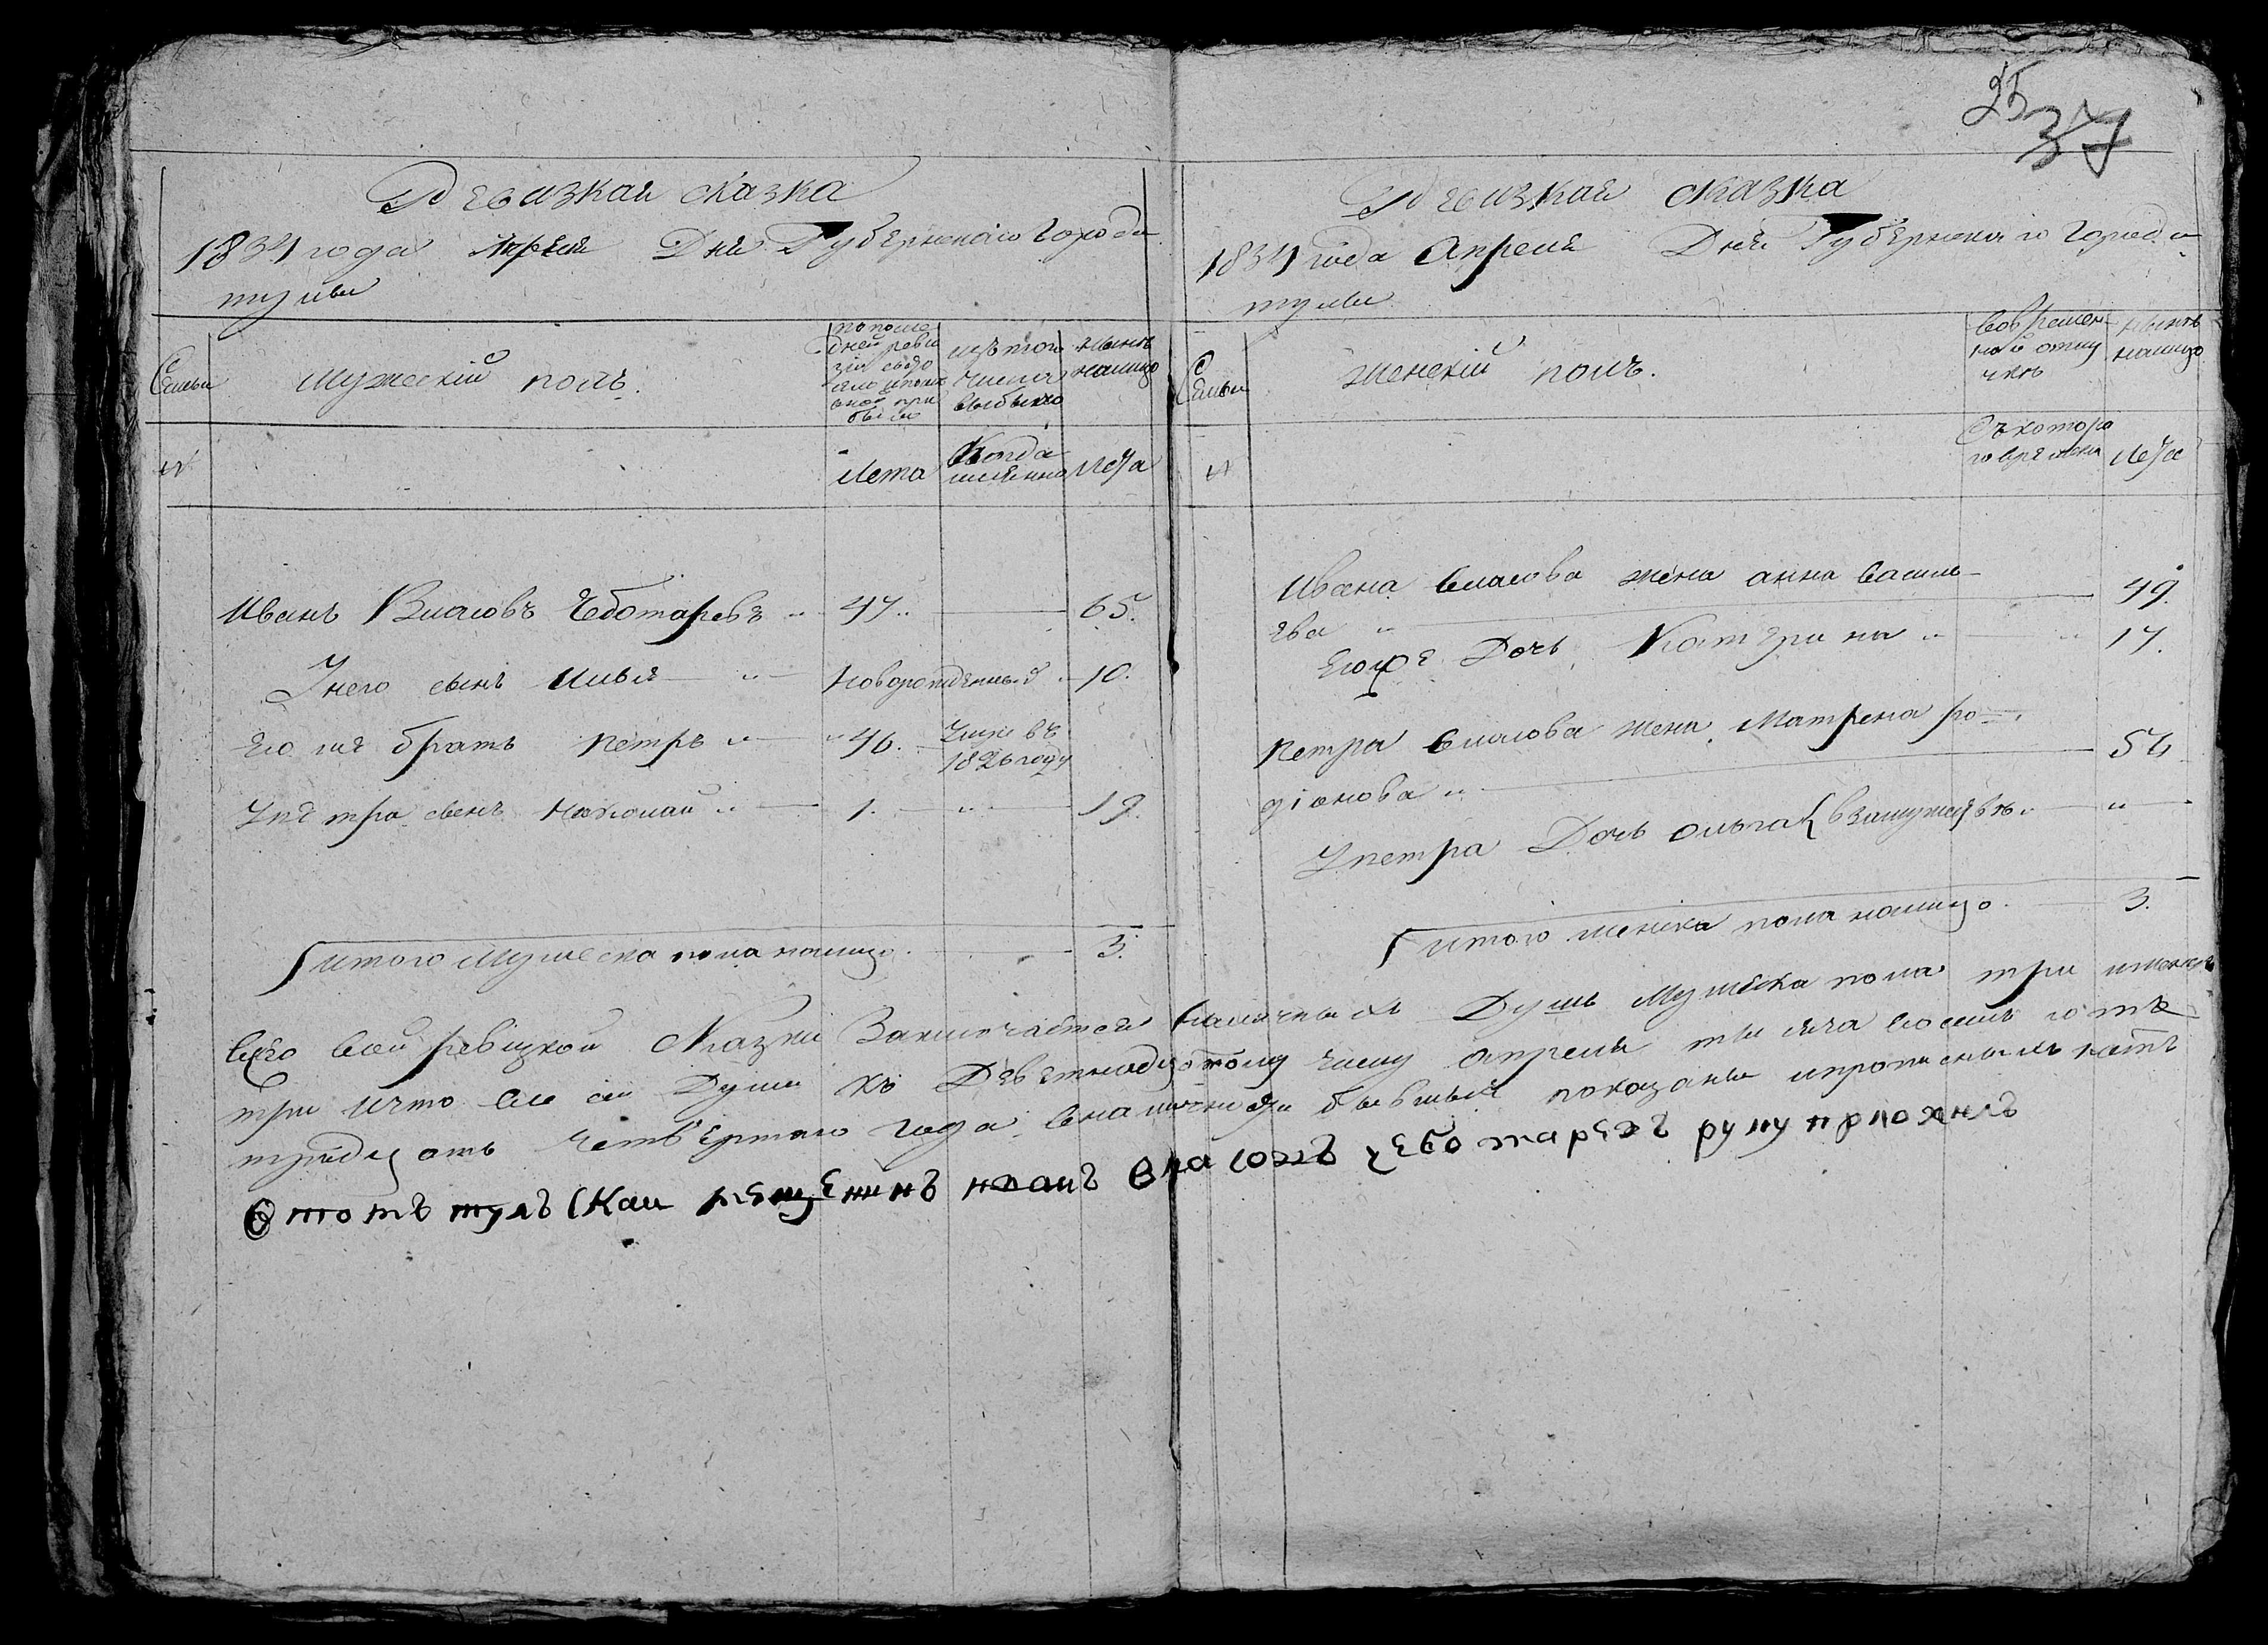 25
37
Ревизкая сказка
1834 года Апреля Дня Губернскаго Города
тулы
Семьи
Мужескій полъ.
по после
дней реви
зіи
было
изъ того
числа
выбыло
ныне
налицо
№
Лета
Когда
именно
Лета
Иванъ Власовъ Чеботаревъ 47 65.
У него сынъ Илья новорожденный 10.
Его же братъ Петръ 46. Умре въ
1826 году
У петра сынъ Николай 1. 19.
итого Мужеска пола налицо. 3.
Ревизкая сказка
1834 года Апреля Дня Губернскаго Города
тулы
Семьи
женскій полъ.
Вовремен-
ной отлу
чке
ныне
налицо
№
Съ котора
го времени
Лета
Ивана Власова жена анна василь-
ева 49.
Дочь Катерина 17.
Петра Власова жена Матрена ро-
діонова 54
У петра Дочь ольга взамужестве
итого женска пола налицо. 3.
Всего в сей ревизкой Сказки Заключается наличныхъ Душъ Мужеска пола три женска
три и что все сіи Души къ Девятнадцатому числу апреля тысяча восемь сотъ
тридцать четвертаго года в наличности бывшия показаны и прописныхъ нетъ
тулъскаи мещенинъ иванъ власовъ чеботаревъ руку приложилъ